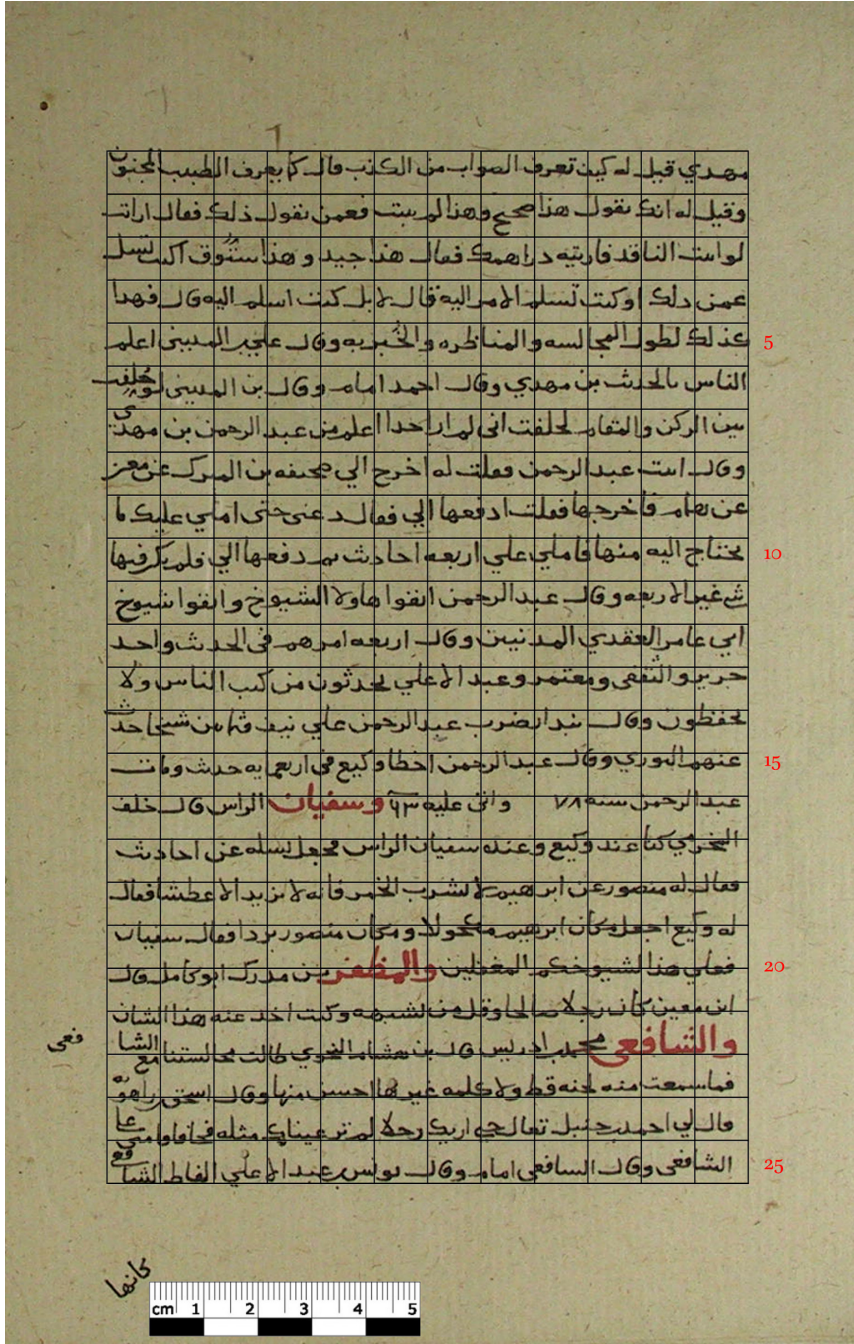 مهدي قيل له كيف تعرف الصواب من الكذب قال كما يعرف الطبيب المجنون
وقيل له انك تقول هذا صحيح وهذا لم يثبت فعمن تقول ذلك فقال ارايت
لو اتيت الناقد فاريته دراهمك فقال هذا جيد وهذا ستوق اكنت تسل
عمن ذلك او كنت تسلم الامر اليه قال لا بل كنت اسلم اليه قال فهذا
كذلك لطول المجالسه والمناظره والخبر به وقال علي بن المديني اعلم
الناس بالحديث بن مهدي وقال احمد امام وقال بن المديني لو حلفت
بين الركن والمقام لحلفت اني لم ار احدا اعلم من عبد الرحمن بن مهدي
وقال اتيت عبد الرحمن فقلت له اخرج الي صحيفه بن المبرك عن معمر
عن همام فاخرجها فقلت ادفعها الي فقال دعني حتى املي عليك ما
يحتاج اليه منها فاملي علي اربعه احاديث ثم دفعها الي فلم يكن فيها
شي غير الاربعه وقال عبد الرحمن اتقوا هاولا الشيوخ واتقوا شيوخ
ابي عامر العقدي المدنيين وقال اربعه امرهم في الحديث واحد
جرير والثقفي ومعتمر وعبد الاعلي يحدثون من كتب الناس ولا
يحفظون وقال بندار ضرب عبد الرحمن علي نيف وثمانين شيخا حدث
عنهم الثوري وقال عبد الرحمن اخطا وكيع في اربعمايه حديث ومات
عبد الرحمن سنه ٧٨ واتى عليه ٦٣ وسفيان الراس قال خلف
المخرمي كنا عند وكيع وعنده سفيان الراس فجعل يسله عن احاديث
فقال له منصور عن ابرهيم لا تشرب الخمر فانه لا يزيد الا عطشا فقال
له وكيع اجعل مكان ابرهيم مكحولا ومكان منصور بردا فقال سفيان
فعلي هذا لشيوخكم المغفلين والمظفر بن مدرك ابو كامل قال
ابن معين كان رجلا صالحا وقل من يشبهه وكنت اخذ عنه هذا الشان
والشافعي محمد بن ادريس قال بن هشام النحوي طالت مجالستنا الشافعي مع
فما سمعت منه لحنه قط ولا كلمه غيرها احسن منها وقال اسحق راهويه
قال لي احمد بن حنبل تعال حتى اريك رجلا لم تر عيناك مثله فجا فاقامني علي
الشافعي وقال السافعي امام وقال يونس بن عبد الاعلي الفاظ الشافعي
كانها
5
10
15
20
25
cm 1 2 3 4 5